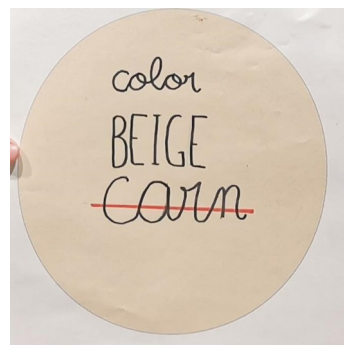 color
BEIGE
carn